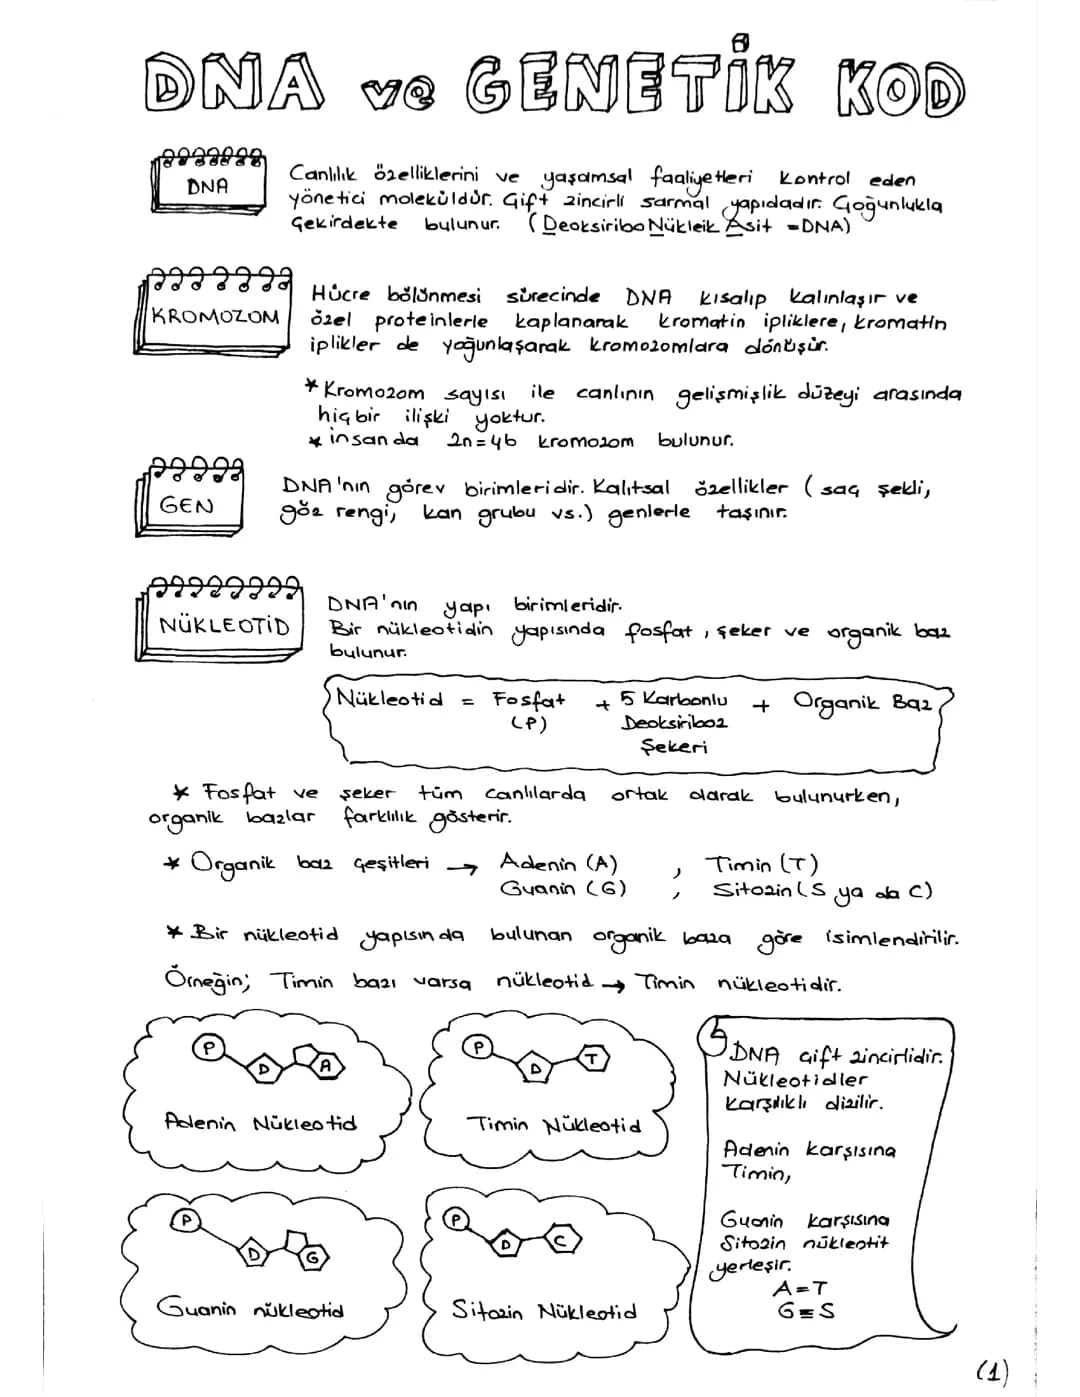 DNA ve GENETİK KOD
DNA
Canlılık özelliklerini ve yaşamsal faaliyetleri kontrol eden
yönetici moleküldür. Çift zincirli sarmal yapıdadır. Çoğunlukla
Çekirdekte bulunur. (Deoksiribo Nükleik Asit = DNA)
KROMOZOM
Hücre bölünmesi sürecinde DNA kısalıp kalınlaşır ve
özel proteinlerle kaplanarak kromatin ipliklere, kromatin
iplikler de yoğunlaşarak kromozomlara dönüşür.
* Kromozom sayısı ile canlının gelişmişlik düzeyi arasında
hiç bir ilişki yoktur.
* insanda 2n=46 kromozom bulunur.
GEN
DNA'nın görev birimleridir. Kalıtsal özellikler (saç şekli,
göz rengi, kan grubu vs.) genlerle taşınır.
NÜKLEOTİD
DNA'nın yapı birimleridir.
Bir nükleotidin yapısında fosfat, şeker ve organik baz
bulunur.
Nükleotid = Fosfat + 5 Karbonlu + Organik Baz
(P) Deoksiriboz
Şekeri
* Fosfat ve şeker tüm canlılarda ortak olarak bulunurken,
organik bazlar farklılık gösterir.
* Organik baz çeşitleri → Adenin (A) , Timin (T)
Guanin (G) , Sitozin (S ya da C)
* Bir nükleotid yapısında bulunan organik baza göre isimlendirilir.
Örneğin; Timin bazı varsa nükleotid → Timin nükleotidir.
P D A
Adenin Nükleotid
P D T
Timin Nükleotid
P D G
Guanin nükleotid
P D C
Sitozin Nükleotid
DNA çift zincirlidir.
Nükleotidler
karşılıklı dizilir.
Adenin karşısına
Timin,
Guanin karşısına
Sitozin nükleotit
yerleşir.
A=T
G≡S
(1)